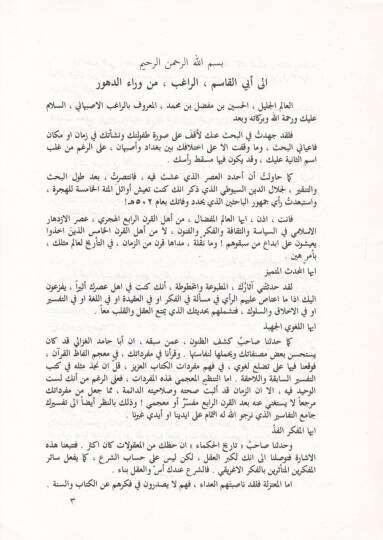 بسم الله الرحمن الرحيم
الى أبي القاسم ، الراغب ، من وراء الدهور
العالم الجليل ، الحسين بن مفضل بن محمد ، المعروف بالراغب الاصبهاني ، السلام
عليك ورحمة الله وبركاته وبعد
فلقد جهدتُ في البحث عنك لأقف على صورة طفولتك ونشأتك في زمان او مكان
فاعياني البحث ، وما وقفت الا على اختلافك بين بغداد وأصبهان ، على الرغم من غلب
اسم الثانية عليك ، وقد يكون فيها مسقط رأسك .
كما حاولتُ أن أحدد العصر الذي عشت فيه ، فانتصرتُ ، بعد طول البحث
والتنقير ، لجلال الدين السيوطي الذي ذكر انك كنت تعيش أوائل المئة الخامسة للهجرة ،
واستبعدتُ رأي جمهور الباحثين الذي يحدد وفاتك بعام ٥٠٢ هـ!
فانت ، اذن ، ايها العالم المفضال ، من أهل القرن الرابع الهجري ، عصر الازدهار
الاسلامي في السياسة والثقافة والفكر والفنون ، لا من أهل القرن الخامس الذين اخذوا
يعيشون على ابداع من سبقوهم ! وما نقلة ، مداها قرن من الزمان ، في التأريخ لعالم مثلك ،
بأمر هين .
ايها المحدث المتميز
لقد حدثتني آثارك ، المطبوعة والمخطوطة ، أنك كنت في اهل عصرك أثيراً ، يفزعون
اليك اذا ما اعتاص عليهم الرأي في مسألة في الفكر او في العقيدة او في اللغة او في التفسير
او في الاخلاق والسلوك ، فتشملهم بحديثك الذي يمتع العقل والقلب معاً .
ايها اللغوي الجهبذ
كما حدثنا صاحب كشف الظنون ، عمن سبقه ، ان أبا حامد الغزالي قد كان
يستحسن بعض مصنفاتك ويحملها لنفاستها . وقرأنا في مفرداتك ، في معجم الفاظ القرآن ،
فوقعنا فيها على تضلع لغوي ، في فهم مفردات الكتاب العزيز ، قلّ ان نجد مثله في كتب
التفسير السابقة واللاحقة . اما التنظيم المعجمي لهذه المفردات ، فعلى الرغم من أنك لست
الوحيد فيه ، الا ان الزمان قد أثبت صحته وصلاحيته الدائمة ، مما جعل من مفرداتك
مرجعاً لا يستغني عنه بعد القرن الرابع مفسّر أو معجمي ! وذلك بالنظر أيضاً الى تفسيرك
جامع التفاسير الذي نرجو الله له التمام على ايدينا او أيدي غيرنا .
ايها المفكر الفذّ
وحدثنا صاحب « تاريخ الحكماء » ان حظك من المعقولات كان اكثر . فتتبعنا هذه
الاشارة فتوصلنا الى انك تُكبر العقل ، لكن ليس على حساب الشرع ، كما يفعل سائر
المفكرين المتأثرين بالفكر الاغريقي . فالشرع عندك أسّ والعقل بناء .
اما المعتزلة فلقد ناصبتهم العداء ، فهم لا يصدرون في فكرهم عن الكتاب والسنة .
٣